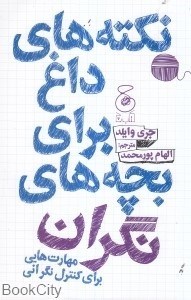 نکته‌های
داغ
برای
بچه‌های
جری وایلد
مترجم:
الهام پورمحمد
نگران
مهارت‌هایی
برای کنترل نگرانی
BookCity